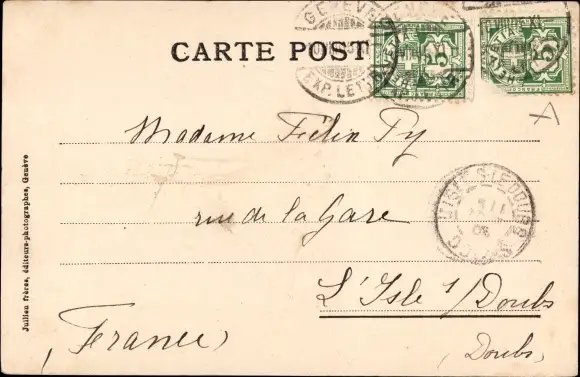 CARTE POST
Madame Félix Py
rue de la Gare
L'Isle s/Doubs
France
(Doubs)
Julien frères, éditeurs-photographes, Genève
GENÈVE
EXP. LET
5
5
L'ISLE-S-LE-DOUBS